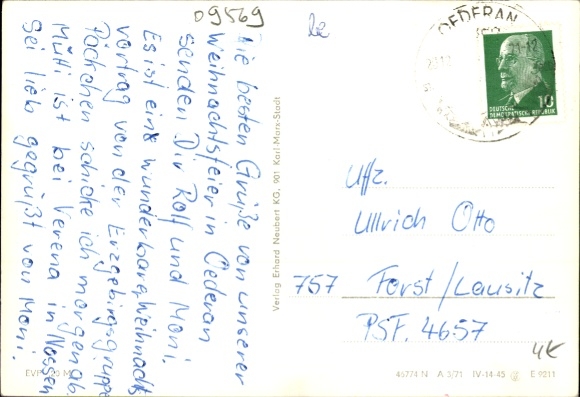 09569
Die besten Grüße von unserer
Weihnachtsfeier in Oederan
senden Dir Rolf und Moni.
Es ist eine wunderbare Weihnachts
vortrag von der Erzgebirgsgruppe
Päckchen schicke ich morgen ab.
Mutti ist bei Verena in Nossen
Sei lieb gegrüßt von Moni.
EVP
Verlag Erhard Neubert KG, 901 Karl-Marx-Stadt
OEDERAN
DEUTSCHE
DEMOKRATISCHE REPUBLIK
10
Uffz.
Ullrich Otto
757 Forst/Lausitz
PSF. 4657
4€
46774 N A 5/71 IV-14-45 E 9211